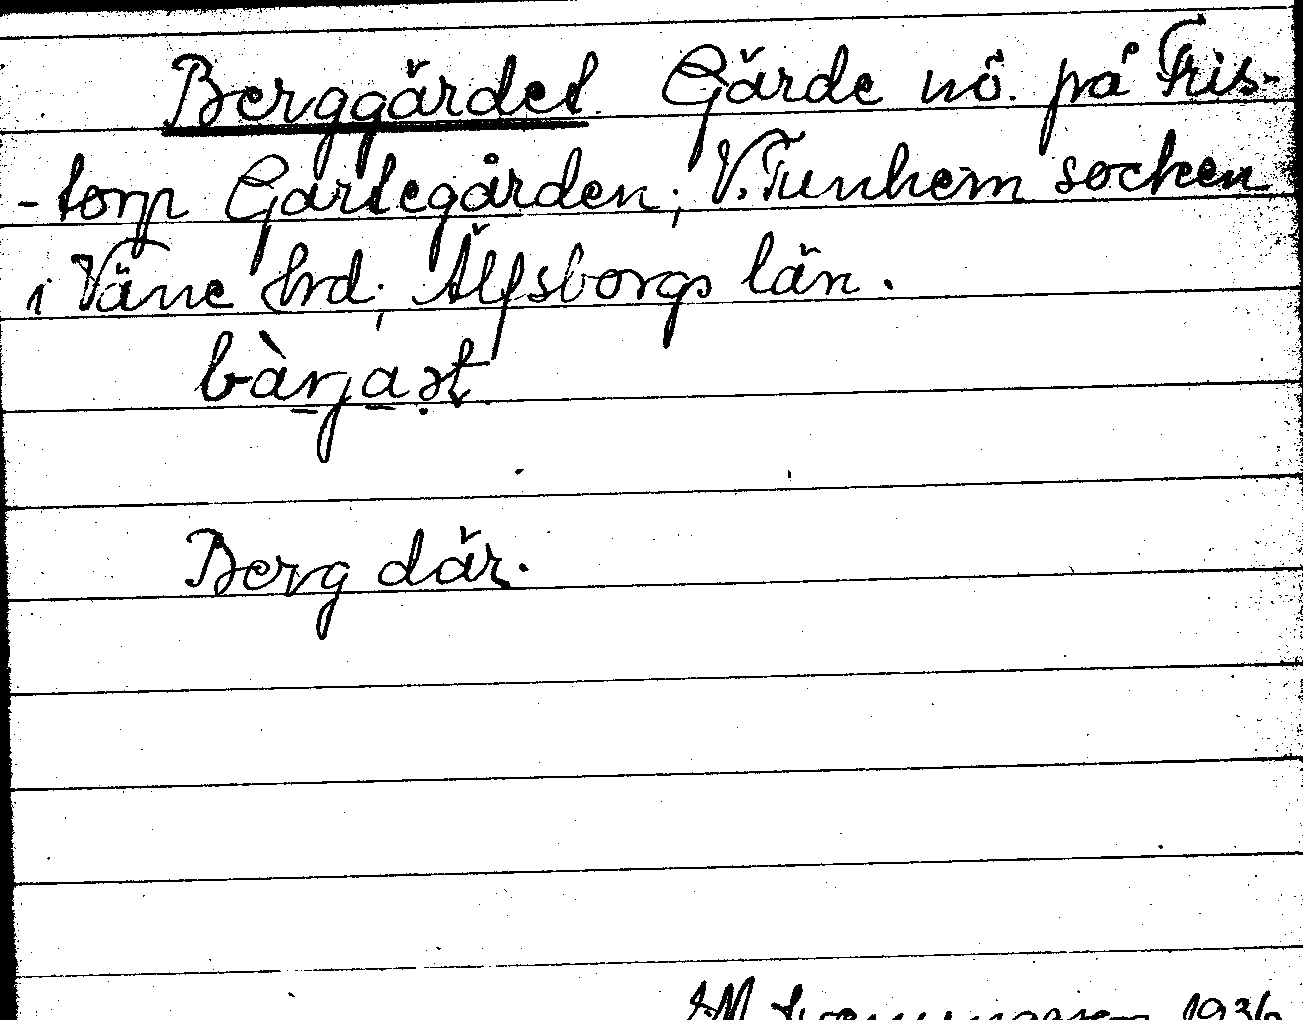 Berggärdet Gärde nö. på Fris-
-torp Gartegården; V. Tunhem socken
i Väne hrd; Älfsborgs län.
bàrjaət
Berg där.
1936